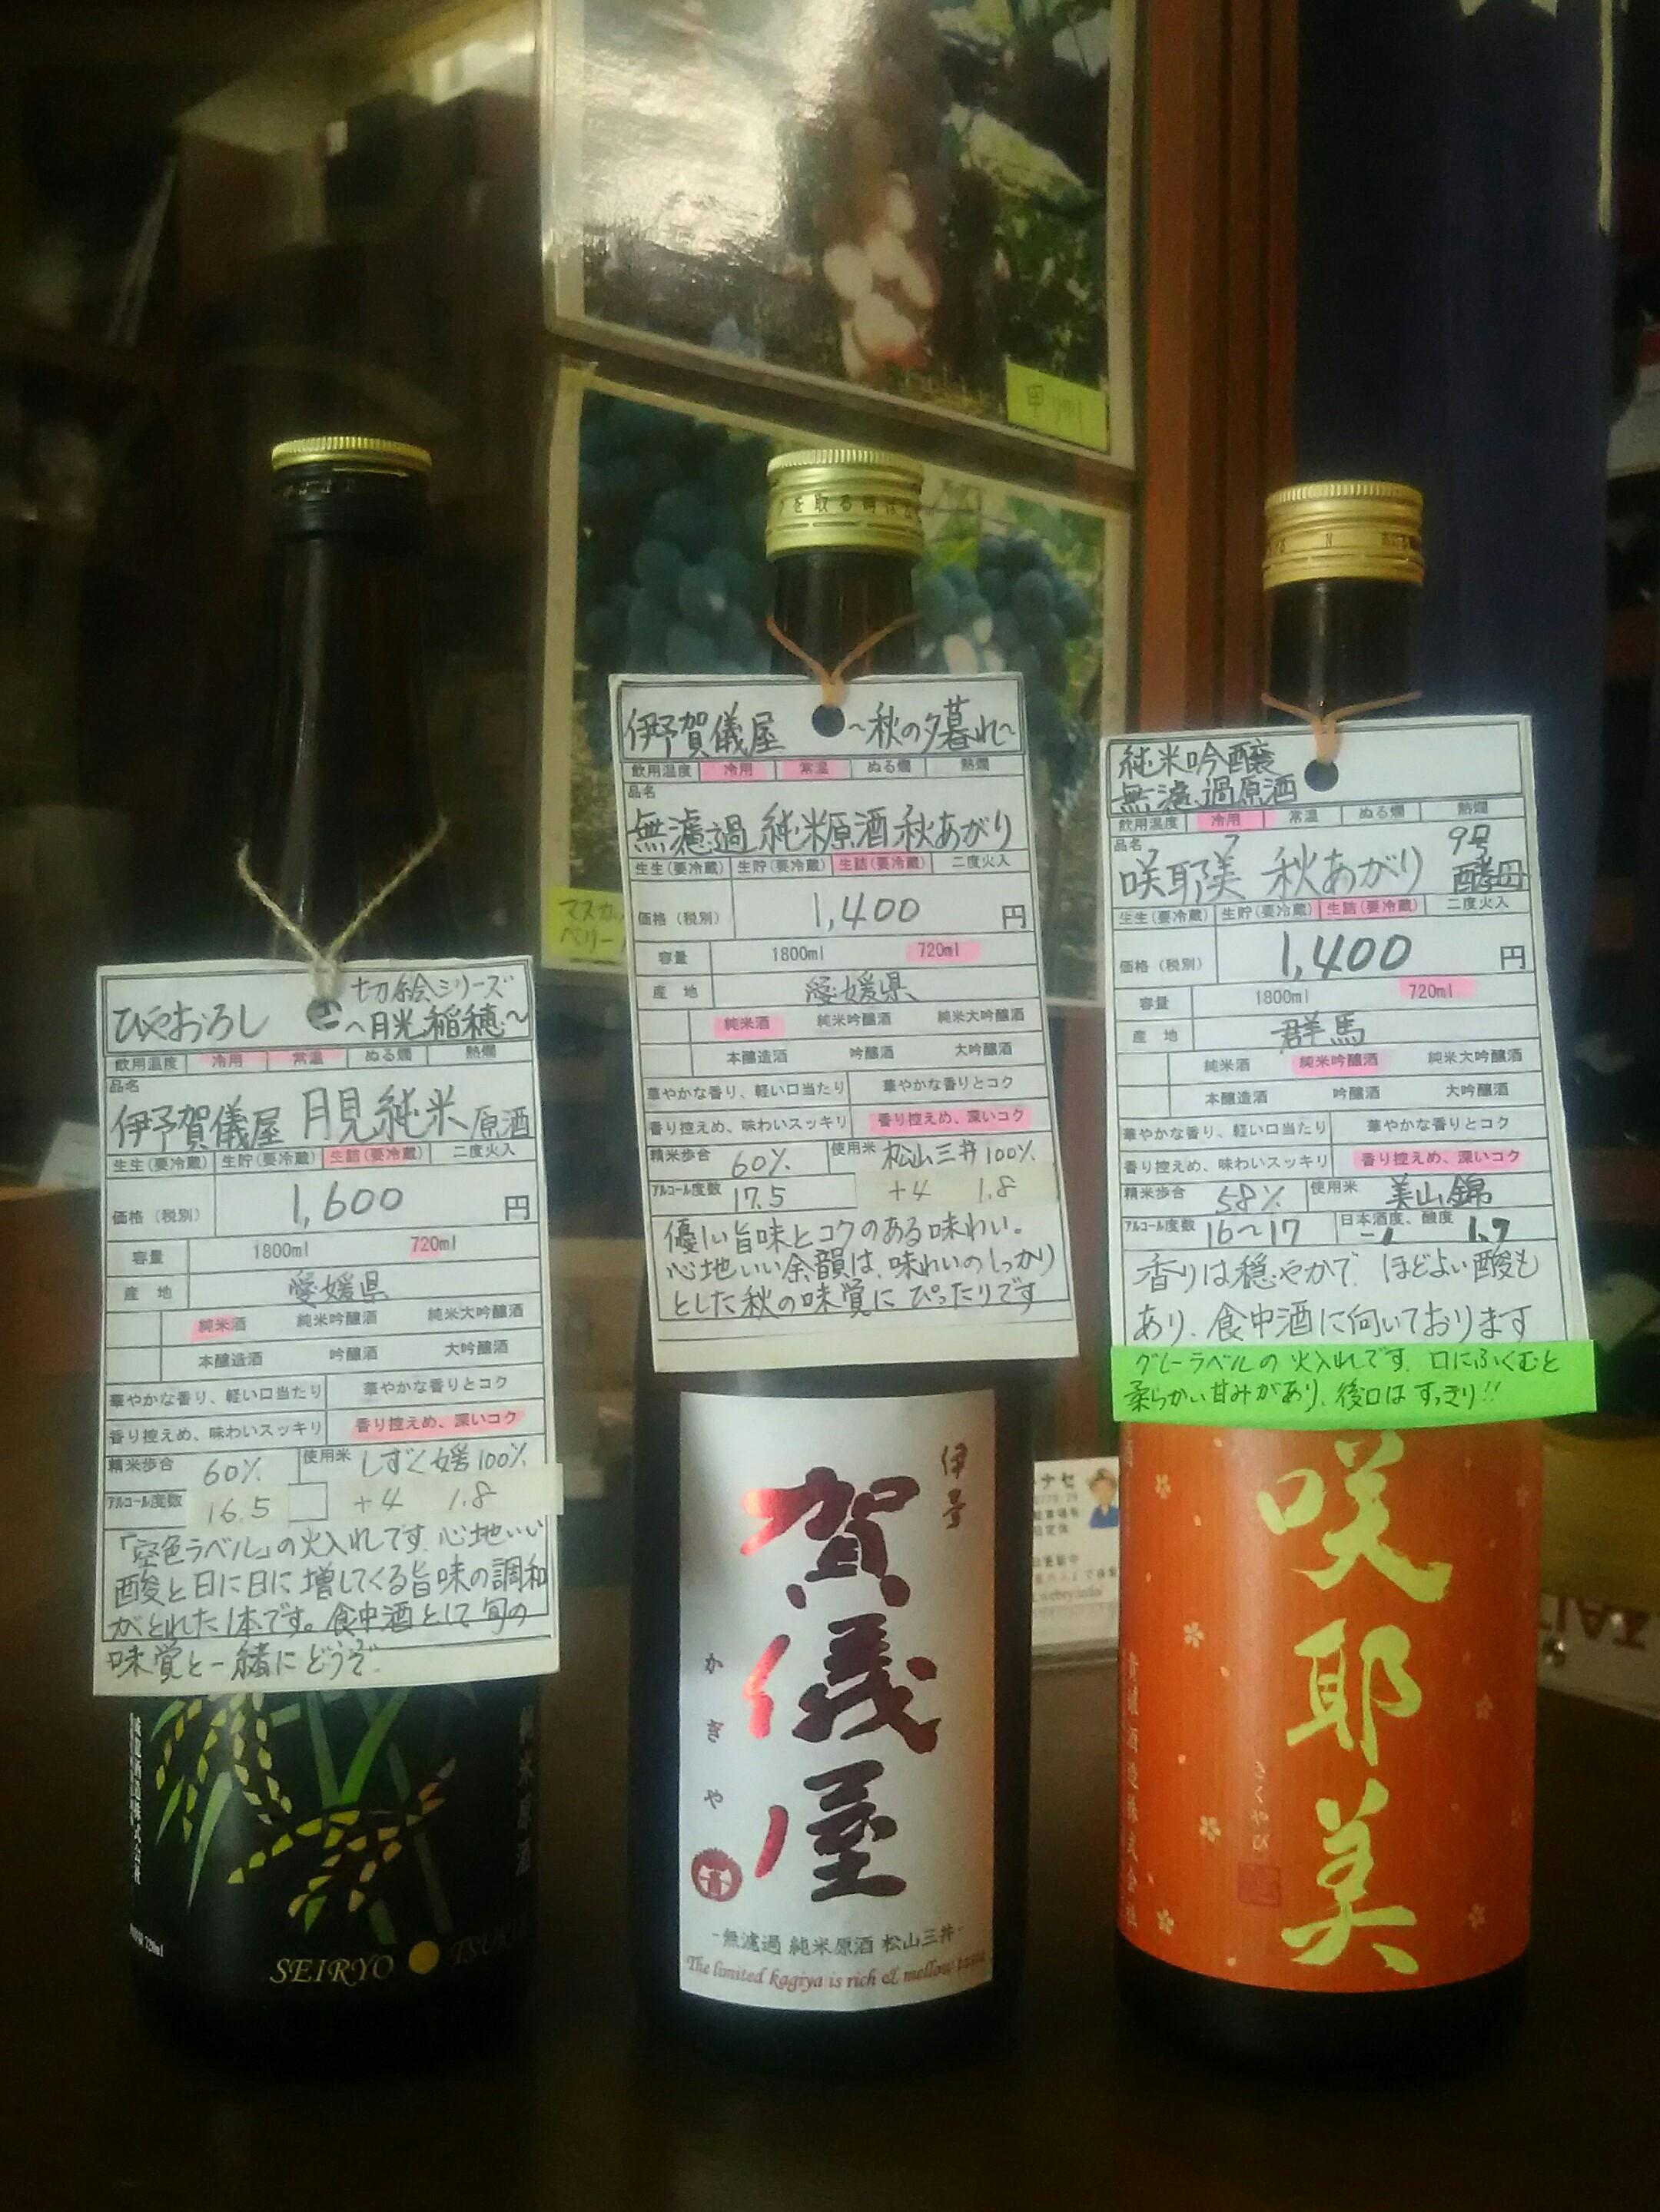 甲州
マスカッ
ベリー
ひやおろし
切り絵シリーズ
〜月光稲穂〜
飲用温度 冷用 常温 ぬる燗 熱燗
品名
伊予賀儀屋 月見純米原酒
生生(要冷蔵) 生貯(要冷蔵) 生詰(要冷蔵) 二度火入
価格(税別) 1,600 円
容量 1800ml 720ml
産地 愛媛県
純米酒 純米吟醸酒 純米大吟醸酒
本醸造酒 吟醸酒 大吟醸酒
華やかな香り、軽い口当たり 華やかな香りとコク
香り控えめ、味わいスッキリ 香り控えめ、深いコク
精米歩合 60% 使用米 しずく媛100%
アルコール度数 16.5 +4 1.8
「空色ラベル」の火入れです。心地いい
酸と日に日に増してくる旨味の調和
がとれた1本です。食中酒として旬の
味覚と一緒にどうぞ
純米原酒
SEIRYO
伊予賀儀屋 〜秋の夕暮れ〜
飲用温度 冷用 常温 ぬる燗 熱燗
品名
無濾過純米原酒秋あがり
生生(要冷蔵) 生貯(要冷蔵) 生詰(要冷蔵) 二度火入
価格(税別) 1,400 円
容量 1800ml 720ml
産地 愛媛県
純米酒 純米吟醸酒 純米大吟醸酒
本醸造酒 吟醸酒 大吟醸酒
華やかな香り、軽い口当たり 華やかな香りとコク
香り控えめ、味わいスッキリ 香り控えめ、深いコク
精米歩合 60% 使用米 松山三井100%
アルコール度数 17.5 +4 1.8
優しい旨味とコクのある味わい。
心地いい余韻は、味わいのしっかり
とした秋の味覚にぴったりです
伊予
賀儀屋
かぎや
-無濾過 純米原酒 松山三井-
The limited kagiya is rich & mellow taste
純米吟醸
無濾過原酒
飲用温度 冷用 常温 ぬる燗 熱燗
品名
咲耶美 秋あがり 9号酵母
生生(要冷蔵) 生貯(要冷蔵) 生詰(要冷蔵) 二度火入
価格(税別) 1,400 円
容量 1800ml 720ml
産地 群馬
純米酒 純米吟醸酒 純米大吟醸酒
本醸造酒 吟醸酒 大吟醸酒
華やかな香り、軽い口当たり 華やかな香りとコク
香り控えめ、味わいスッキリ 香り控えめ、深いコク
精米歩合 58% 使用米 美山錦
アルコール度数 16〜17 日本酒度、酸度 1.7
香りは穏やかで、ほどよい酸も
あり、食中酒に向いております
グレーラベルの火入れです。口にふくむと
柔らかい甘みがあり、後口はすっきり!!
咲耶美
さくやび
貴娘酒造株式会社